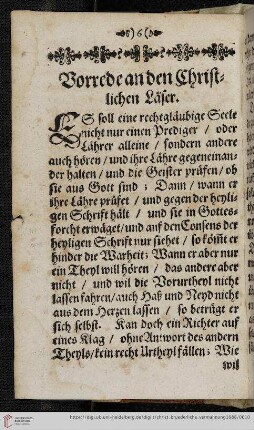 )6(
Vorrede an den Christ-
lichen Läser.
ES soll eine rechtgläubige Seele
nicht nur einen Prediger / oder
Lährer alleine / sondern andere
auch hören / und ihre Lähre gegeneinan-
der halten / und die Geister präfen / ob
sie aus Gott sind ; Dann / wann er
ihre Lähre präfet / und gegen der heyli-
gen Schrift hält / und sie in Gottes-
forcht erwäget / und auf den Consens der
heyligen Schrift nur siehet / so kömt er
hinder die Warheit; Wann er aber nur
ein Theyl will hören / das andere aber
nicht / und wil die Vorurtheyl nicht
lassen fahren / auch Haß und Neyd nicht
aus dem Herzen lassen / so betrügt er
sich selbst. Kan doch ein Richter auf
eines Klag / ohne Antwort des andern
Theyls / kein recht Urtheyl fällen; Wie
wil